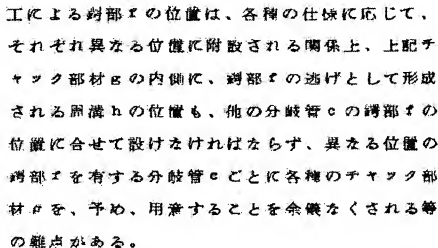 工による鍔部fの位置は、各種の仕様に応じて、
それぞれ異なる位置に附設される関係上、上記チ
ャック部材gの内側に、鍔部fの逃げとして形成
される周溝hの位置も、他の分岐管cの鍔部fの
位置に合せて設けなければならず、異なる位置の
鍔部fを有する分岐管cごとに各種のチャック部
材gを、予め、用意することを余儀なくされる等
の難点がある。